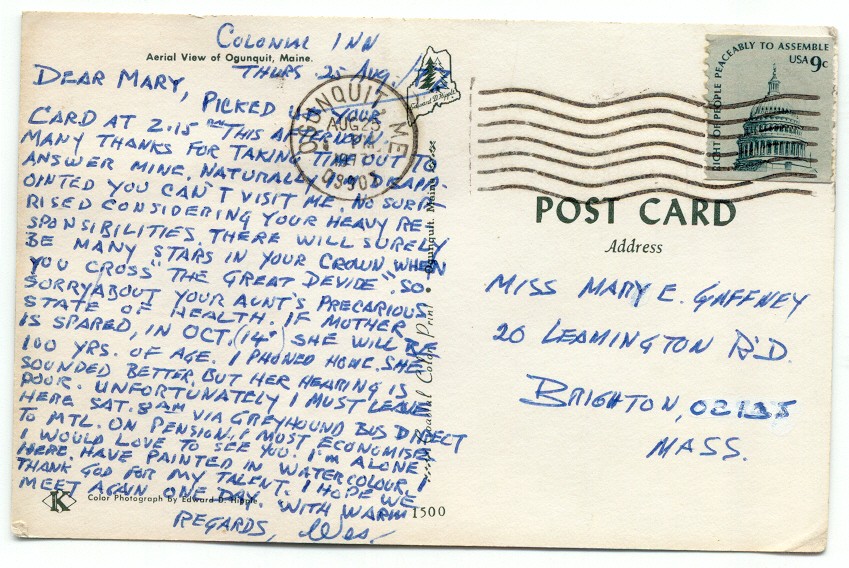 COLONIAL INN
Aerial View of Ogunquit, Maine.
THURS. 25 AUG.
DEAR MARY,
PICKED UP YOUR
CARD AT 2:15 PM THIS AFTERNOON.
MANY THANKS FOR TAKING TIME OUT TO
ANSWER MINE. NATURALLY I'M DISAPP-
OINTED YOU CAN'T VISIT ME. NO SURP-
RISED CONSIDERING YOUR HEAVY RE-
SPONSIBILITIES. THERE WILL SURELY
BE MANY STARS IN YOUR CROWN WHEN
YOU CROSS "THE GREAT DEVIDE". SO
SORRY ABOUT YOUR AUNT'S PRECARIOUS
STATE OF HEALTH. IF MOTHER
IS SPARED, IN OCT. (14th) SHE WILL BE
100 YRS. OF AGE. I PHONED HOME. SHE
SOUNDED BETTER, BUT HER HEARING IS
POOR. UNFORTUNATELY I MUST LEAVE
HERE SAT. 8 AM VIA GREYHOUND BUS DIRECT
TO MTL. ON PENSION, I MUST ECONOMISE.
I WOULD LOVE TO SEE YOU. I'M ALONE
HERE. HAVE PAINTED IN WATERCOLOUR.
THANK GOD FOR MY TALENT. I HOPE WE
MEET AGAIN ONE DAY. WITH WARM
REGARDS, Wes.
K
Color Photograph by Edward D. Hipple
1500
Color Print
Ogunquit, Maine
OGUNQUIT, ME
AUG 25
PM
03907
RIGHT OF PEOPLE PEACEABLY TO ASSEMBLE
USA 9c
POST CARD
Address
MISS MARY E. GAFFNEY
20 LEAMINGTON R'D.
BRIGHTON, 02135
MASS.